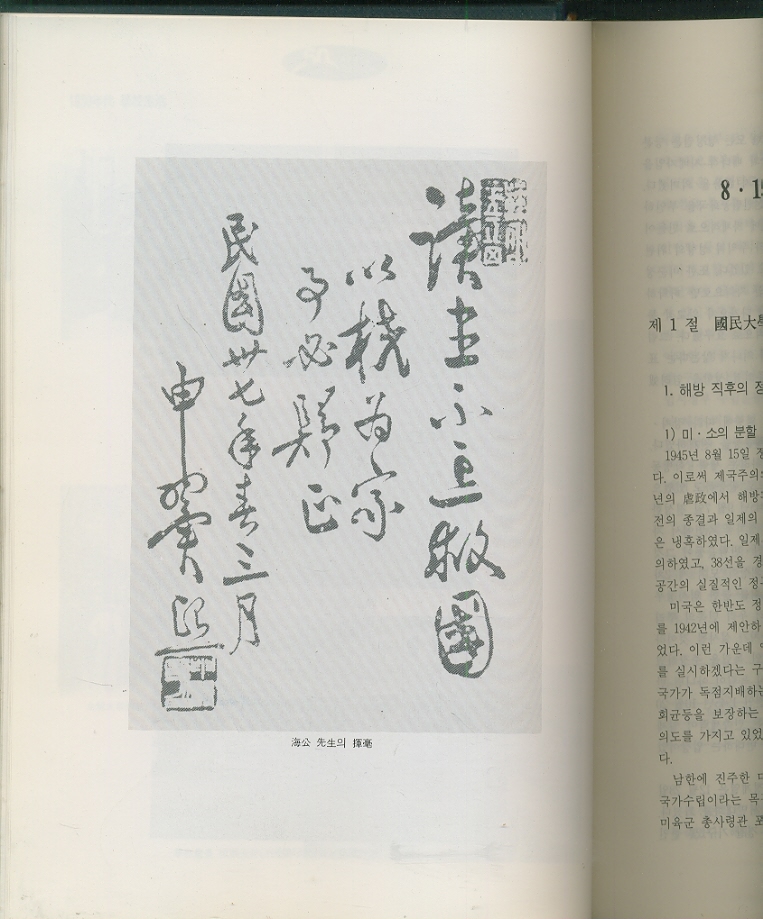 讀書不忘救國
以校为家
事必歸正
民國卅七年春三月
申翼熙
海公 先生의 揮毫
8 · 15
제 1 절 國民大學
1. 해방 직후의 정
1) 미 · 소의 분할
1945년 8월 15일
다. 이로써 제국주의
년의 虐政에서 해방
전의 종결과 일제의
은 냉혹하였다. 일제
의하였고, 38선을 경
공간의 실질적인 정
미국은 한반도 정
를 1942년에 제안하
었다. 이런 가운데
를 실시하겠다는 구
국가가 독점지배하는
회균등을 보장하는
의도를 가지고 있었
다.
남한에 진주한
국가수립이라는 목
미육군 총사령관